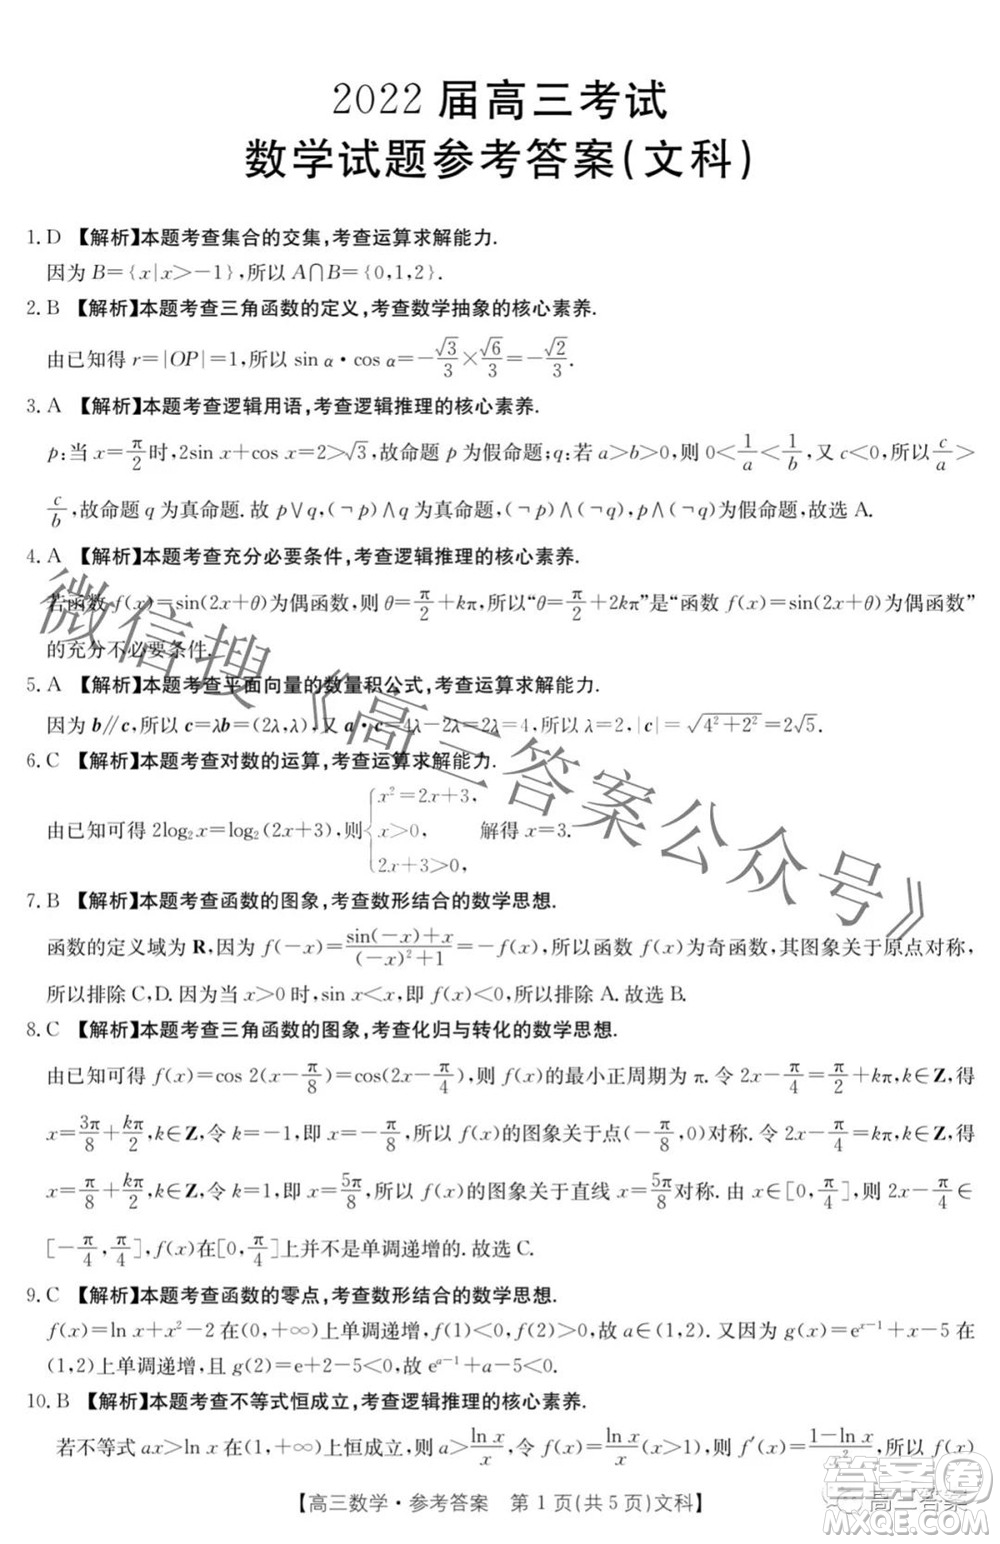 2022 届高三考试
数学试题参考答案(文科)
1. D 【解析】本题考查集合的交集,考查运算求解能力.
因为 B={x|x>-1},所以 A∩B={0,1,2}.
2. B 【解析】本题考查三角函数的定义,考查数学抽象的核心素养.
由已知得 r=|OP|=1,所以 sin α·cos α=-√3/3×√6/3=-√2/3.
3. A 【解析】本题考查逻辑用语,考查逻辑推理的核心素养.
p:当 x=π/2时,2sin x+cos x=2>√3,故命题 p 为假命题;q:若 a>b>0,则 0<1/a<1/b,又 c<0,所以c/a>
c/b,故命题 q 为真命题.故 p∨q,(¬p)∧q 为真命题,(¬p)∧(¬q),p∧(¬q)为假命题,故选 A.
4. A 【解析】本题考查充分必要条件,考查逻辑推理的核心素养.
若函数 f(x)=sin(2x+θ)为偶函数,则 θ=π/2+kπ,所以“θ=π/2+2kπ”是“函数 f(x)=sin(2x+θ)为偶函数”
的充分不必要条件.
5. A 【解析】本题考查平面向量的数量积公式,考查运算求解能力.
因为 b∥c,所以 c=λb=(2λ,λ),又 a·c=4λ-2λ=2λ=4,所以 λ=2,|c|=√(4²+2²)=2√5.
6. C 【解析】本题考查对数的运算,考查运算求解能力.
由已知可得 2log₂x=log₂(2x+3),则{x²=2x+3, x>0, 2x+3>0, 解得 x=3.
7. B 【解析】本题考查函数的图象,考查数形结合的数学思想.
函数的定义域为 R,因为 f(-x)=(sin(-x)+x)/((-x)²+1)=-f(x),所以函数 f(x)为奇函数,其图象关于原点对称,
所以排除 C,D.因为当 x>0 时,sin x<x,即 f(x)<0,所以排除 A.故选 B.
8. C 【解析】本题考查三角函数的图象,考查化归与转化的数学思想.
由已知可得 f(x)=cos 2(x-π/8)=cos(2x-π/4),则 f(x)的最小正周期为 π.令 2x-π/4=π/2+kπ,k∈Z,得
x=3π/8+kπ/2,k∈Z,令 k=-1,即 x=-π/8,所以 f(x)的图象关于点(-π/8,0)对称.令 2x-π/4=kπ,k∈Z,得
x=π/8+kπ/2,k∈Z,令 k=1,即 x=5π/8,所以 f(x)的图象关于直线 x=5π/8对称.由 x∈[0,π/4],则 2x-π/4∈
[-π/4,π/4],f(x)在[0,π/4]上并不是单调递增的.故选 C.
9. C 【解析】本题考查函数的零点,考查数形结合的数学思想.
f(x)=ln x+x²-2 在(0,+∞)上单调递增,f(1)<0,f(2)>0,故 a∈(1,2).又因为 g(x)=eˣ⁻¹+x-5 在
(1,2)上单调递增,且 g(2)=e+2-5<0,故 eᵃ⁻¹+a-5<0.
10. B 【解析】本题考查不等式恒成立,考查逻辑推理的核心素养.
若不等式 ax>ln x 在(1,+∞)上恒成立,则 a>ln x/x,令 f(x)=ln x/x(x>1),则 f′(x)=(1-ln x)/x²,所以 f(x)
【高三数学·参考答案 第 1 页(共 5 页)文科】
微信搜《高三答案公众号》
高三答案
答案卷
MXQE.COM